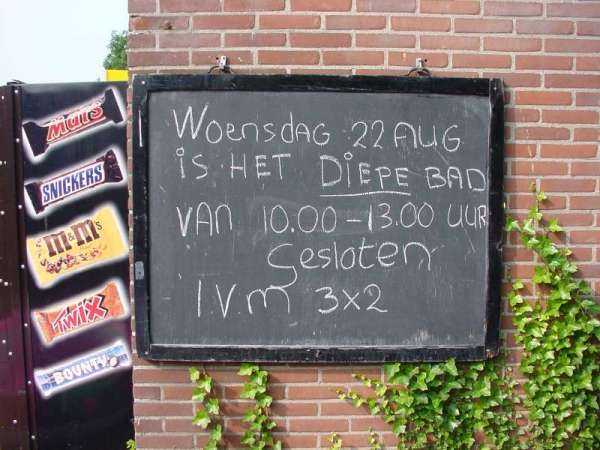 Woensdag 22 AUG
is HET DIEPE BAD
VAN 10.00-13.00 UUR
Gesloten
I.V.m 3x2
Mars
SNICKERS
m&m's
TWIX
BOUNTY